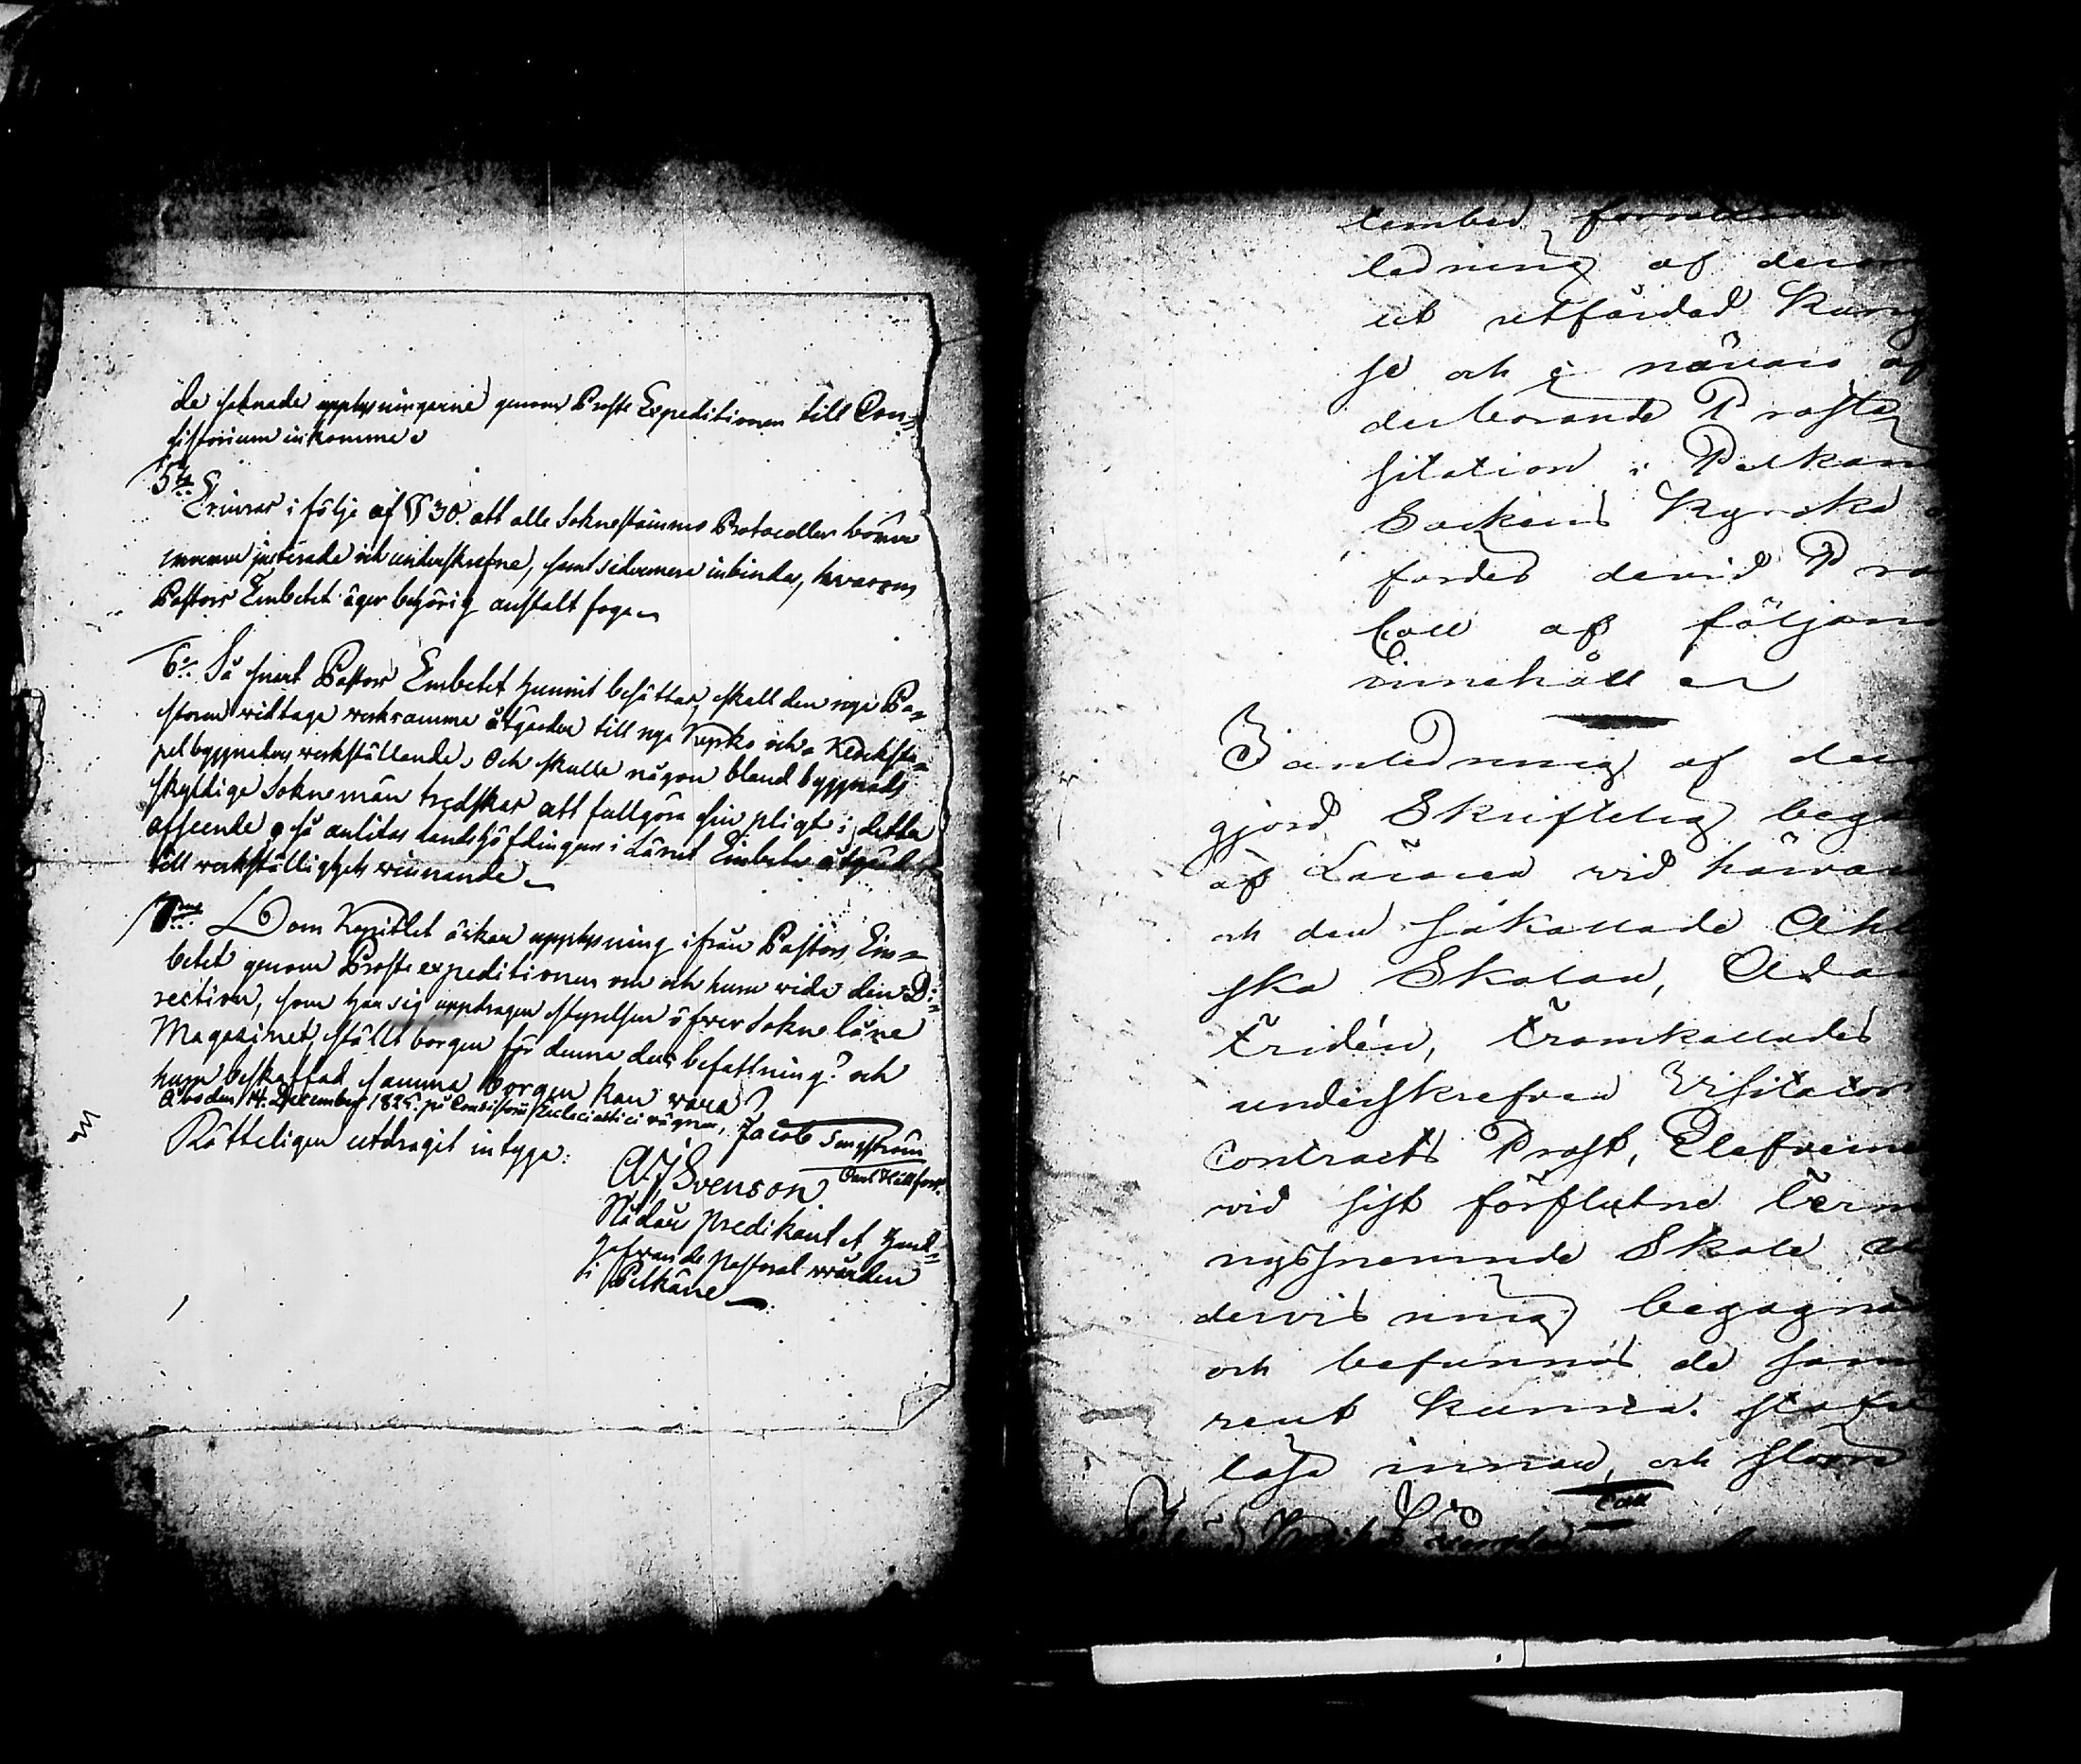 de saknade upplysningarne genom Prosts Expeditionen till Con-
sistorium inkomma.
5te Erinras i följe af § 30. att alla Sokne stämmo Protocoller böra
innom justerade och underskrefne, samt sedermera inbindas, hvarom
Pastors Embetet äger behörig anstalt foga.
6te Så snart Pastors Embetet hunnit besättas, skall den nya Pa-
storn widtaga werksamma åtgärder till nya Kyrko och Klocksta-
pel byggnadens werkställande. Och skulle någon bland byggnads
skyldige Soknemän tredskas att fullgöra sin pligt i detta
afseende, så anlitas Landshöfdingens i Länet Embets åtgärd
till werkställighets winnande.
7me Dom Kapitlet äskar upplysning ifrån Pastors Em-
betet genom Prosts expeditionen om och huru wida den Di-
rection, som har sig uppdragen styrelsen öfver Sokne låne
Magazinet, ställt borgen för denna dess befattning? och
huru beskaffad samma borgen kan vara?
Åbo den 14. December 1825. på Consistorii Ecclesiastici vägnar, Jacob Tengström
Rätteligen utdragit intyga:
A. J. Svenson
Nådårs Predikant et
hafvande Pastoral wården
i Pelkäne
ledning af
ut utfärdad Kung
se och i närvaro af
derborande Prosta
sitation i Pelkane
Sockens Kyrcka
fördes dervid Pro
coll af följan
innehåll
I anledning af den
gjord Skriftelig begä
af Läraren vid härvar
och den såkallade Ahl
ska Skolan, Adam
Fridén, framkallades
underskrefven Visitator
Contracts Prost, Elefverne
vid sist förflutne Term
nysnemnde Skole
dervisning begagna
och befunnos de sam
rent kunna stafva
läsa innan, och större